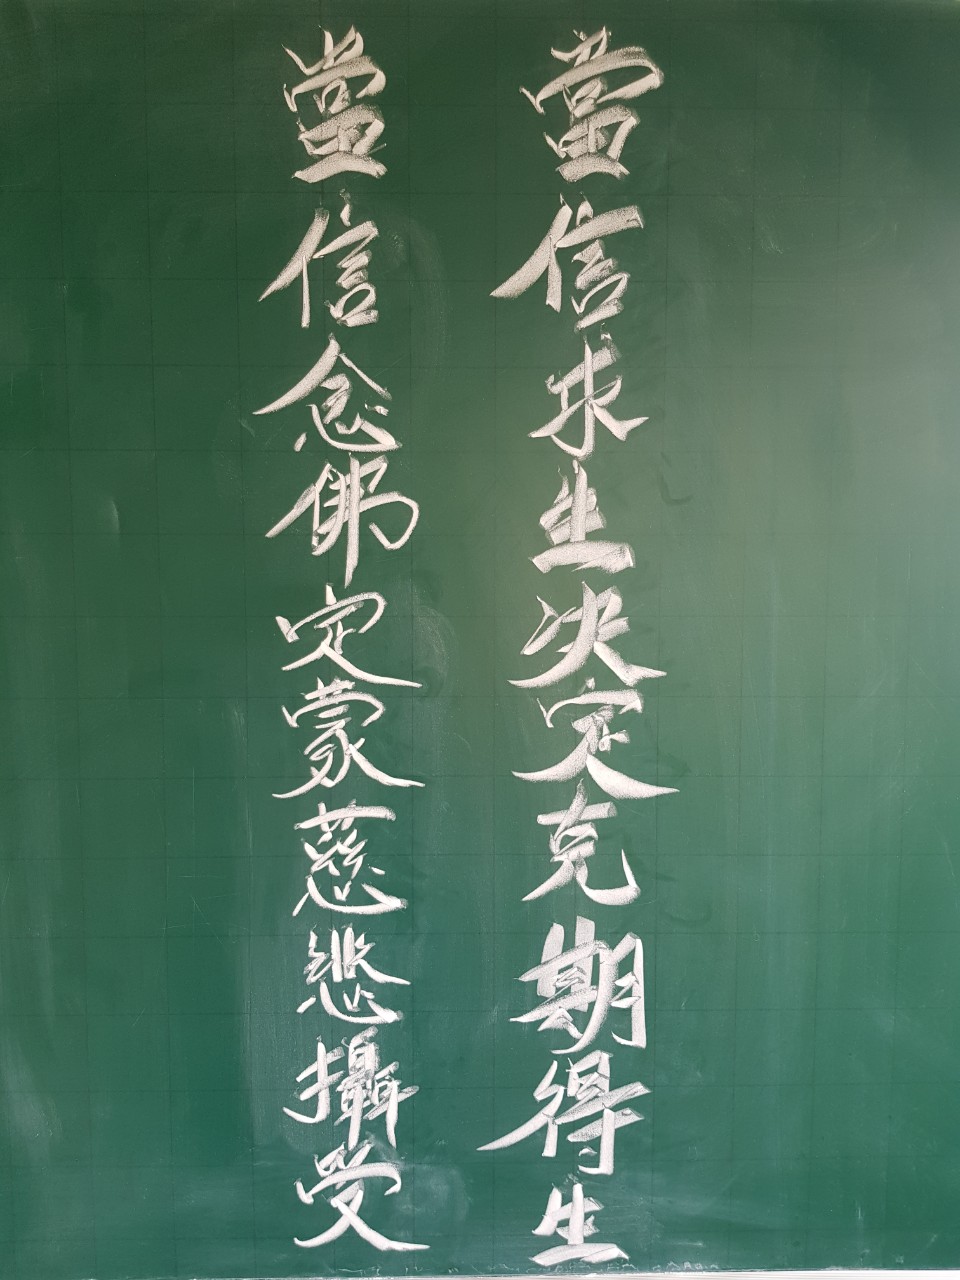 當信求生決定克期得生
當信念佛定蒙慈悲攝受